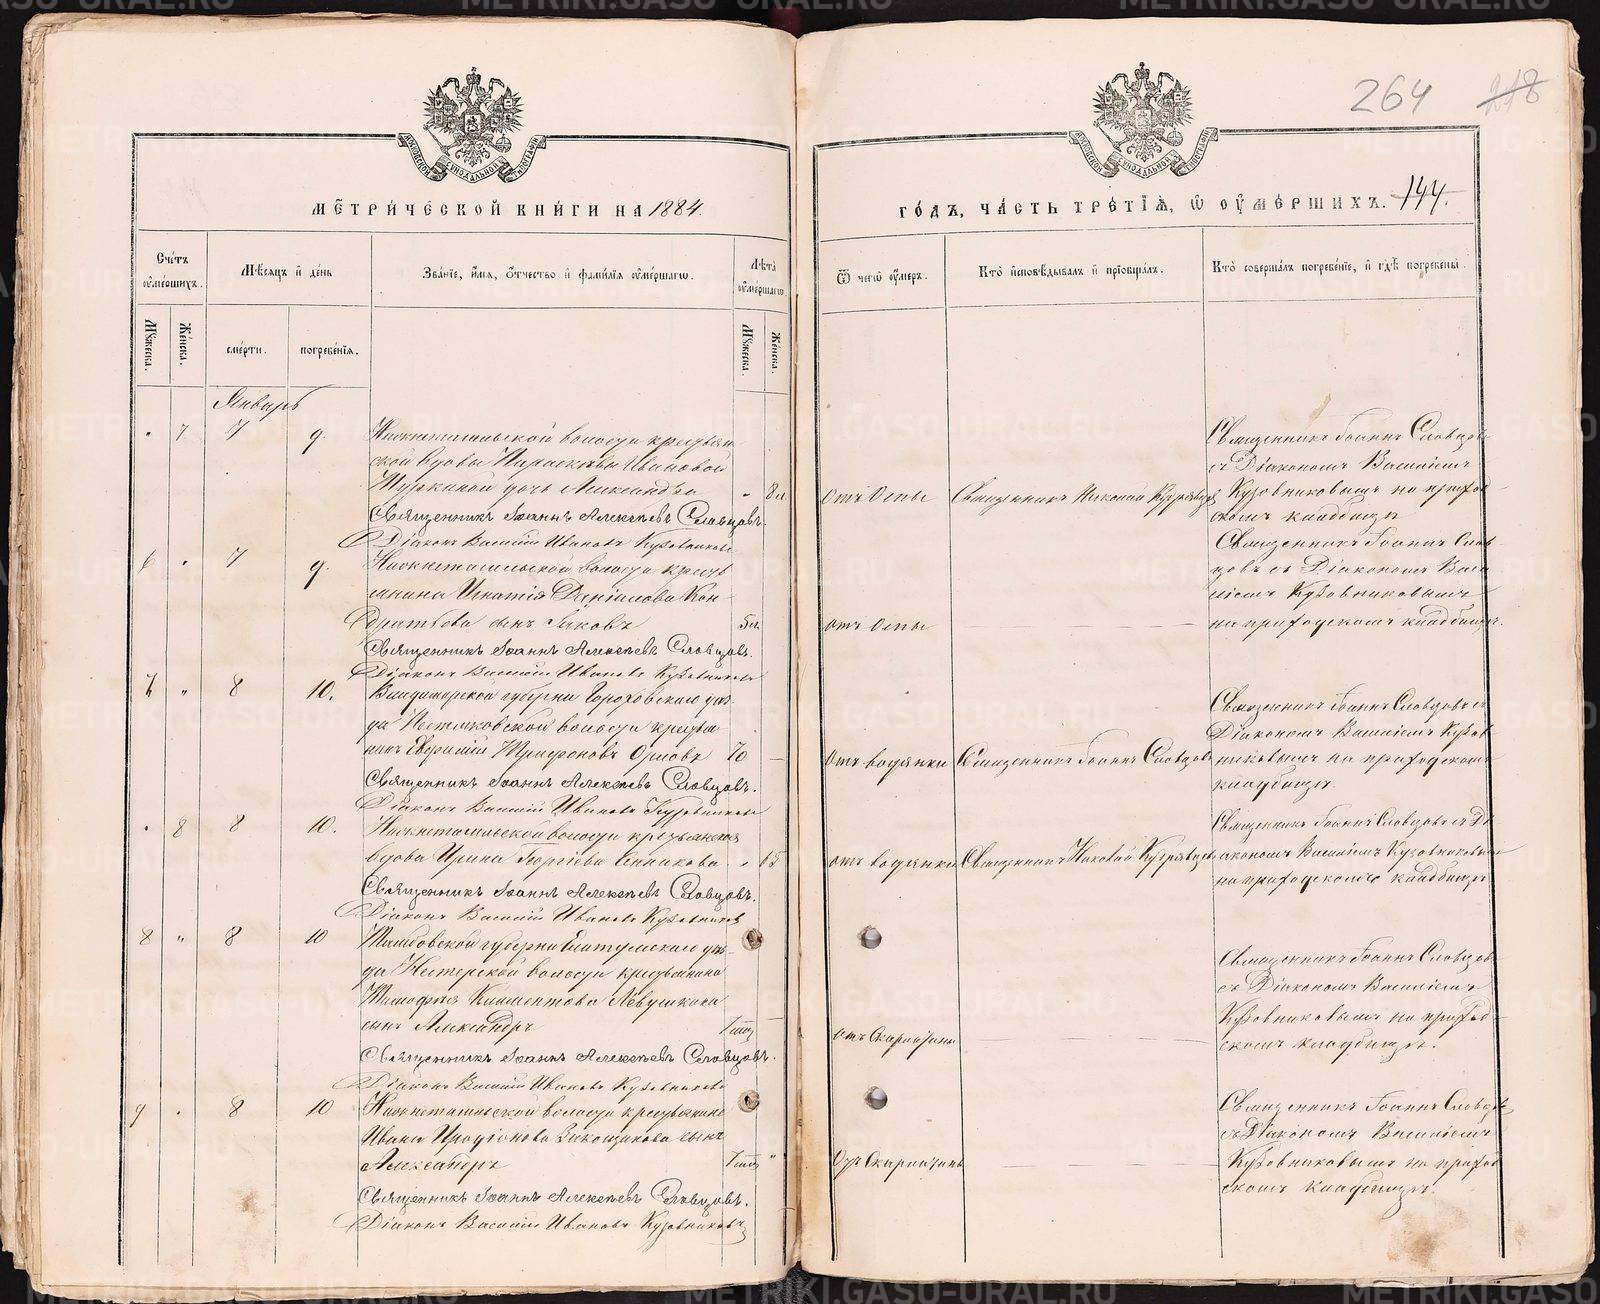 264 218
МЕТРИЧЕСКОЙ КНИГИ НА 1884.
ГОДЪ, ЧАСТЬ ТРЕТІѦ, Ѡ ОУМЕРШИХЪ. 144.
Счетъ оумершихъ.
Мѣсяцъ и день
Званіе, имя, отчество и фамилія оумершагѡ.
Лѣта оумершагѡ.
Ѿ чегѡ оумеръ.
Кто исповѣдывалъ и пріобщалъ.
Кто совершалъ погребеніе, и гдѣ погребены.
Мꙋжеска.
Женска.
смерти.
погребенія.
Мꙋжеска.
Женска.
Январь
7 7 9.
Нижнетагильской волости крестьян-
ской вдовы Параскевы Ивановой
дочь Александра 8 л.
Священникъ Іоаннъ Алексѣевъ Словцовъ.
Діаконъ Василій Ивановъ Кузовниковъ
отъ Оспы
Священникъ Николай Кудрявцевъ
Священникъ Іоаннъ Словцовъ
съ Діакономъ Василіемъ
Кузовниковымъ на приход-
скомъ кладбищѣ
6 7 9.
Нижнетагильской волости кресть
янина Игнатія Даніилова Кон-
дратьева сынъ Іаковъ 5 л.
Священникъ Іоаннъ Алексѣевъ Словцовъ.
Діаконъ Василій Ивановъ Кузовниковъ
отъ Оспы
Священникъ Іоаннъ Слов-
цовъ съ Діакономъ Васи
ліемъ Кузовниковымъ
на приходскомъ кладбищѣ.
7 " 8 10.
Владимірской губерніи Гороховскаго уѣз-
да волости крестья
нинъ Евфимій Трифоновъ Орловъ 70
Священникъ Іоаннъ Алексѣевъ Словцовъ.
Діаконъ Василій Ивановъ Кузовниковъ
Отъ водянки
Священникъ Іоаннъ Словцовъ
Священникъ Іоаннъ Словцовъ съ
Діакономъ Василіемъ Кузов-
никовымъ на приходскомъ
кладбищѣ.
8 8 10.
Нижнетагильской волости крестьянская
вдова Ирина Георгіева 65
Священникъ Іоаннъ Алексѣевъ Словцовъ.
Діаконъ Василій Ивановъ Кузовниковъ
отъ водянки
Священникъ Николай Кудрявцевъ
Священникъ Іоаннъ Словцовъ съ Ді-
акономъ Василіемъ Кузовниковымъ
на приходскомъ кладбищѣ
8 " 8 10
Тамбовской губерніи Елатумскаго уѣз-
да волости крестьянина
Тимофея Климентова Левушкина
сынъ Александръ
Священникъ Іоаннъ Алексѣевъ Словцовъ.
Діаконъ Василій Ивановъ Кузовниковъ
отъ Скарлатины
Священникъ Іоаннъ Словцовъ
съ Діакономъ Василіемъ
Кузовниковымъ на приход-
скомъ кладбищѣ.
9 8 10
Нижнетагильской волости крестьянина
Ивана Иродіонова сынъ
Александръ
Священникъ Іоаннъ Алексѣевъ Словцовъ.
Діаконъ Василій Ивановъ Кузовниковъ
Отъ Скарлатины
Священникъ Іоаннъ Словцовъ
съ Діакономъ Василіемъ
Кузовниковымъ на приход
скомъ кладбищѣ.
METRIKI.GASO-URAL.RU